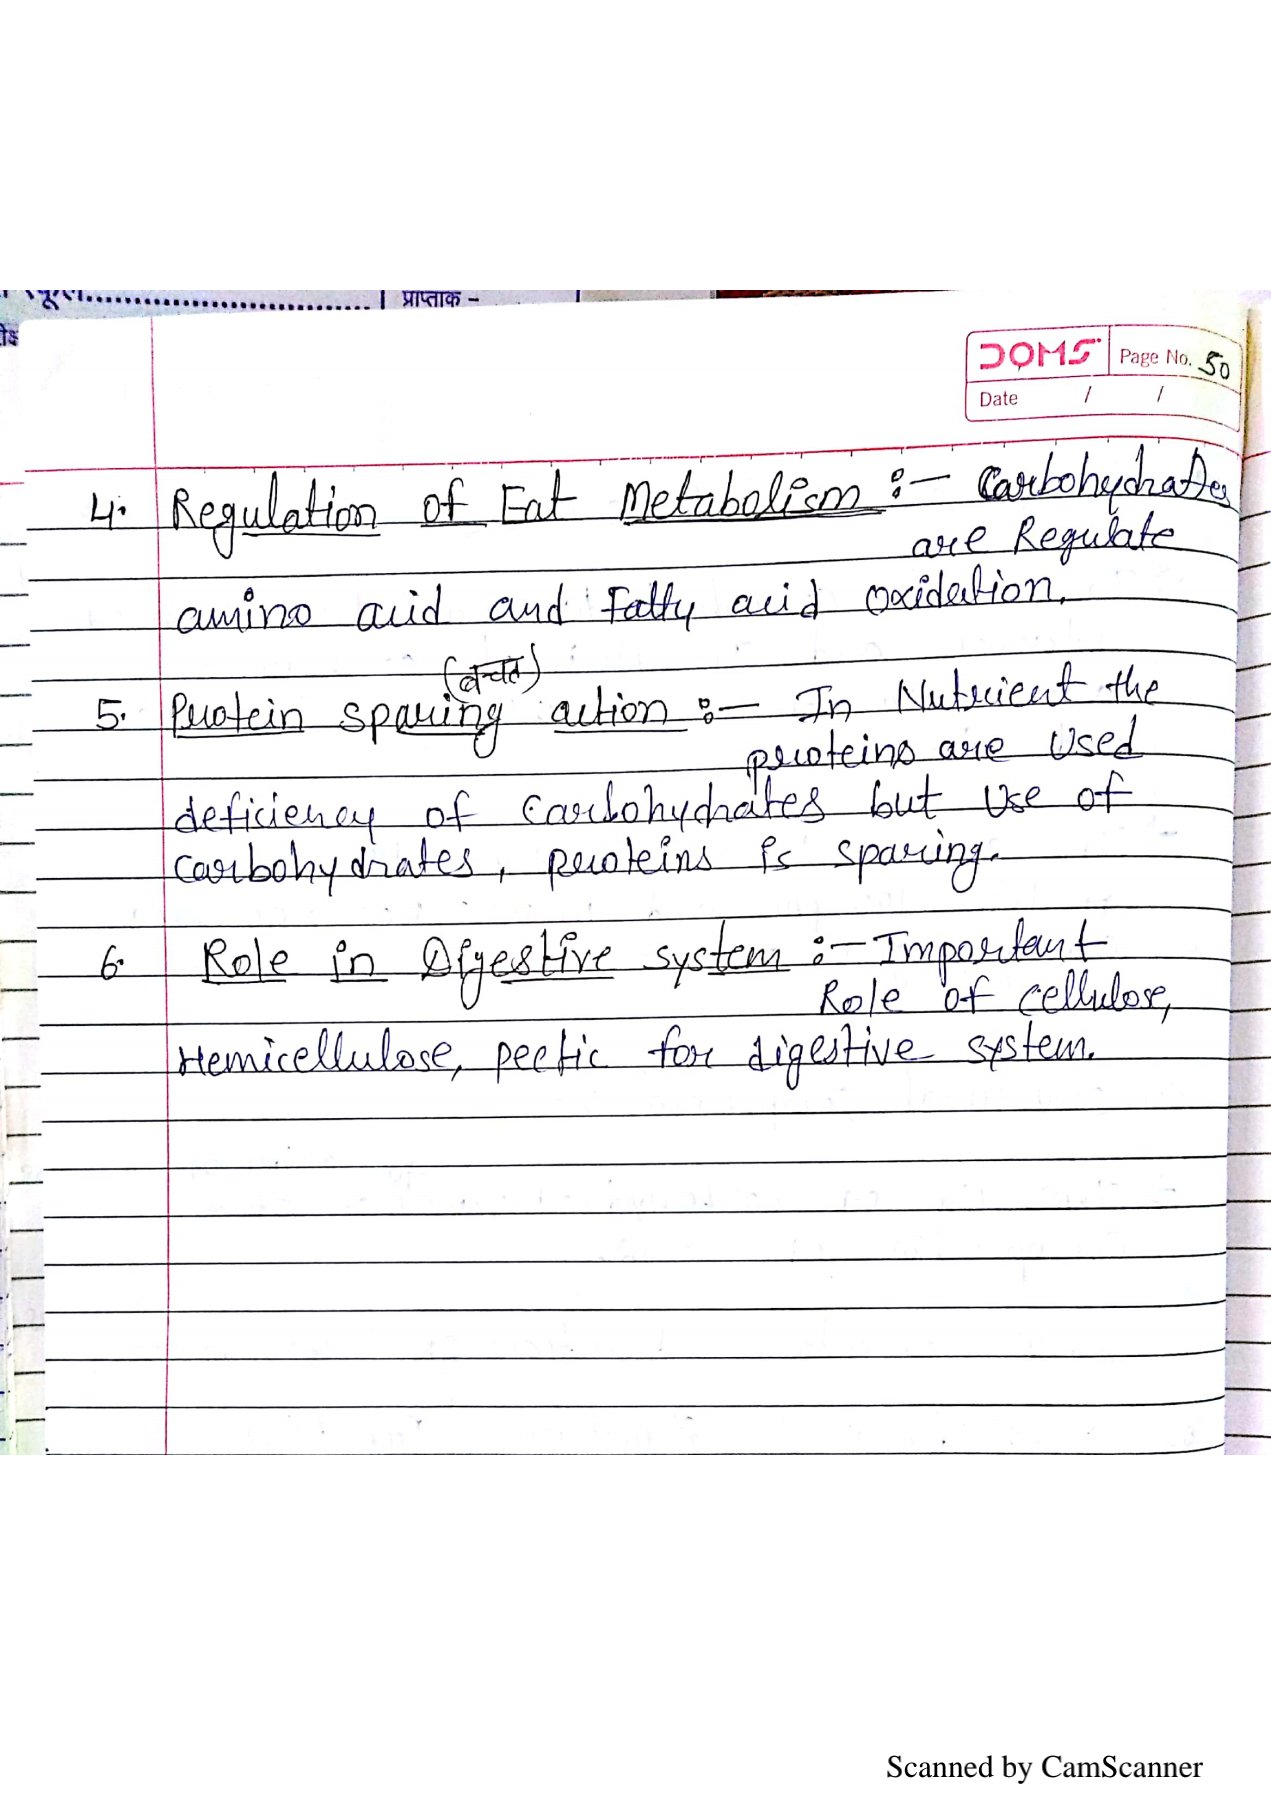 प्राप्तांक -
DOMS Page No. 50
Date / /
4. Regulation of Fat Metabolism :- Carbohydrates
are Regulate
amino acid and Fatty acid oxidation.
(बचत)
5. Protein sparing action :- In Nutrient the
proteins are Used
deficiency of carbohydrates but Use of
carbohydrates, proteins is sparing.
6. Role in Digestive system :- Important
Role of cellulose,
Hemicellulose, pectic for digestive system.
Scanned by CamScanner